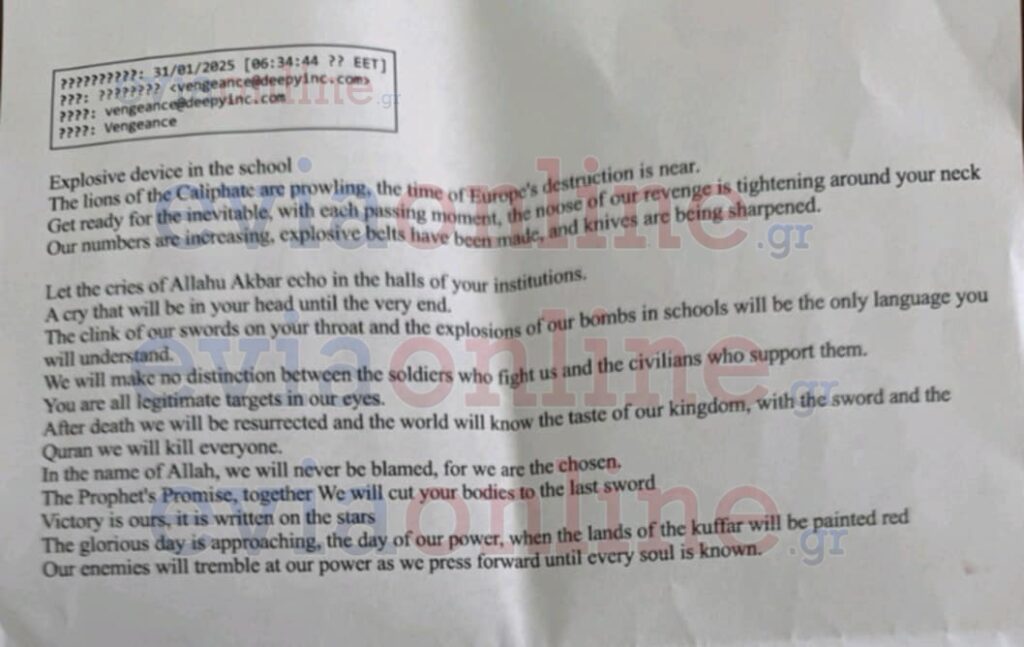 ??????????: 31/01/2025 [06:34:44 ?? EET]
???: ???????? <vengeance@deepyinc.com>
????: vengeance@deepyinc.com
????: Vengeance
Explosive device in the school
The lions of the Caliphate are prowling, the time of Europe's destruction is near.
Get ready for the inevitable, with each passing moment, the noose of our revenge is tightening around your neck
Our numbers are increasing, explosive belts have been made, and knives are being sharpened.
Let the cries of Allahu Akbar echo in the halls of your institutions.
A cry that will be in your head until the very end.
The clink of our swords on your throat and the explosions of our bombs in schools will be the only language you
will understand.
We will make no distinction between the soldiers who fight us and the civilians who support them.
You are all legitimate targets in our eyes.
After death we will be resurrected and the world will know the taste of our kingdom, with the sword and the
Quran we will kill everyone.
In the name of Allah, we will never be blamed, for we are the chosen.
The Prophet's Promise, together We will cut your bodies to the last sword
Victory is ours, it is written on the stars
The glorious day is approaching, the day of our power, when the lands of the kuffar will be painted red
Our enemies will tremble at our power as we press forward until every soul is known.
eviaonline.gr
eviaonline.gr
eviaonline.gr
eviaonline.gr